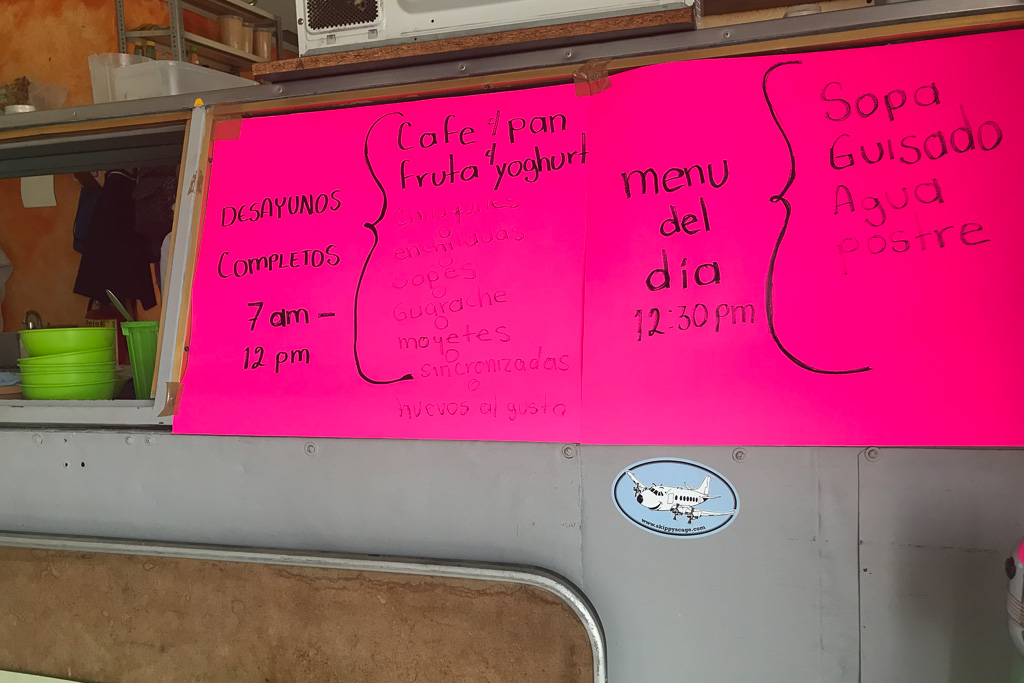 DESAYUNOS
COMPLETOS
7 am -
12 pm
Cafe y pan
fruta y yoghurt
o
enchiladas
o
sopes
o
Guarache
o
moyetes
o
sincronizadas
o
huevos al gusto
menu
del
día
12:30 pm
Sopa
Guisado
Agua
postre
www.skippyscage.com